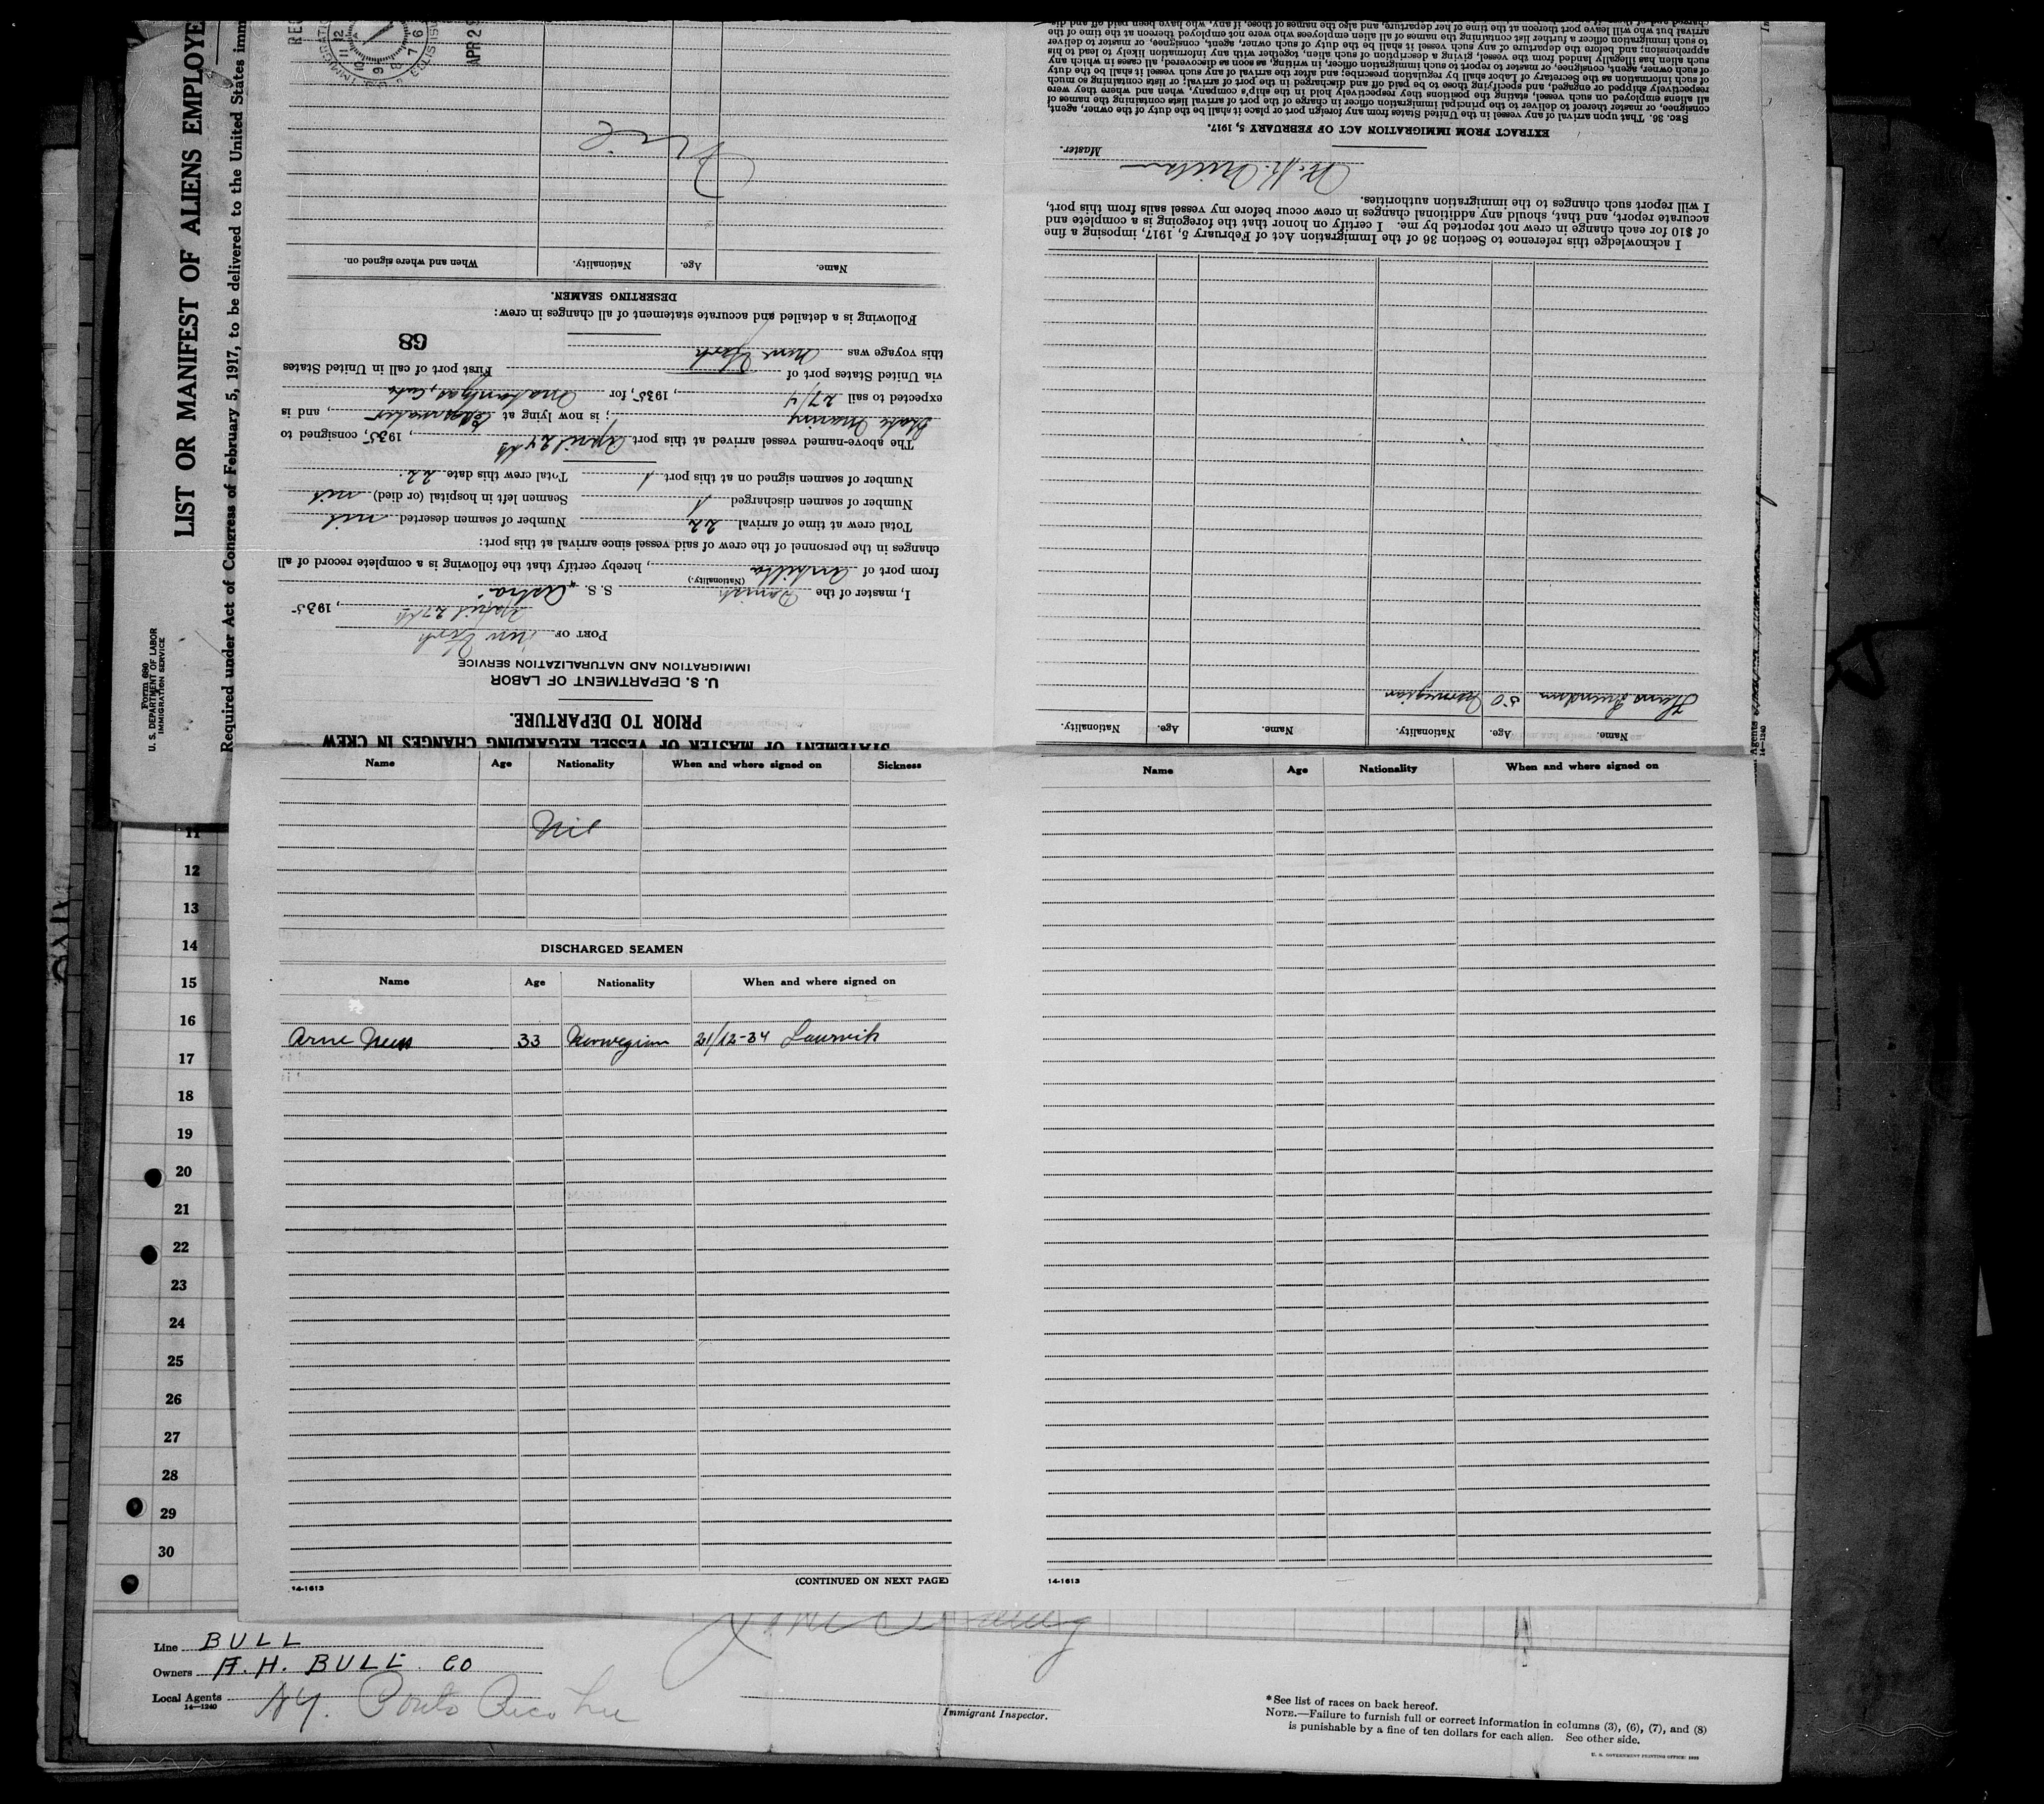 LIST OR MANIFEST OF ALIENS EMPLOYE
Required under Act of Congress of February 5, 1917, to be delivered to the United States imm
Form 680
U. S. DEPARTMENT OF LABOR
IMMIGRATION SERVICE
STATEMENT OF MASTER OF VESSEL REGARDING CHANGES IN CREW
PRIOR TO DEPARTURE.
U. S. DEPARTMENT OF LABOR
IMMIGRATION AND NATURALIZATION SERVICE
PORT OF New York
April 27th, 1935
I, master of the Danish S. S. "Astra"
(Nationality.)
from port of Antilla, hereby certify that the following is a complete record of all
changes in the personnel of the crew of said vessel since arrival at this port:
Total crew at time of arrival 22 Number of seamen deserted nil
Number of seamen discharged 1 Seamen left in hospital (or died) nil
Number of seamen signed on at this port 1 Total crew this date 22.
The above-named vessel arrived at this port April 24th, 1935, consigned to
; is now lying at Edgewater, and is
expected to sail 27/4, 1935, for Matanzas, Cuba
via United States port of First port of call in United States
this voyage was New York
68
Following is a detailed and accurate statement of all changes in crew:
DESERTING SEAMEN.
Name. Age. Nationality. When and where signed on.
Nil
APR 2
Name. Age. Nationality. Name. Age. Nationality.
50 Norwegian
I acknowledge this reference to Section 36 of the Immigration Act of February 5, 1917, imposing a fine
of $10 for each change in crew not reported by me. I certify on honor that the foregoing is a complete and
accurate report, and that, should any additional changes in crew occur before my vessel sails from this port,
I will report such changes to the immigration authorities.
Master.
EXTRACT FROM IMMIGRATION ACT OF FEBRUARY 5, 1917.
SEC. 36. That upon arrival of any vessel in the United States from any foreign port or place it shall be the duty of the owner, agent,
consignee, or master thereof to deliver to the principal immigration officer in charge of the port of arrival lists containing the names of
all aliens employed on such vessel, stating the positions they respectively hold in the ship's company, when and where they were
respectively shipped or engaged, and specifying those to be paid off and discharged in the port of arrival; or lists containing so much
of such information as the Secretary of Labor shall by regulation prescribe; and after the arrival of any such vessel it shall be the duty
of such owner, agent, consignee, or master to report to such immigration officer, in writing, as soon as discovered, all cases in which any
such alien has illegally landed from the vessel, giving a description of such alien, together with any information likely to lead to his
apprehension; and before the departure of any such vessel it shall be the duty of such owner, agent, consignee, or master to deliver
to such immigration officer a further list containing the names of all alien employees who were not employed thereon at the time of the
arrival but who will leave port thereon at the time of her departure, and also the names of those, if any, who have been paid off and dis-
Name Age Nationality When and where signed on Sickness
Nil
DISCHARGED SEAMEN
Name Age Nationality When and where signed on
Arne Ness 33 Norwegian 21/12-34 Laurvik
14-1613 (CONTINUED ON NEXT PAGE)
Name Age Nationality When and where signed on
14-1613
11
12
13
14
15
16
17
18
19
20
21
22
23
24
25
26
27
28
29
30
Line BULL
Owners A. H. BULL CO
Local Agents NY. Porto Rico Line
14-1240
Immigrant Inspector.
*See list of races on back hereof.
NOTE.—Failure to furnish full or correct information in columns (3), (6), (7), and (8)
is punishable by a fine of ten dollars for each alien. See other side.
U. S. GOVERNMENT PRINTING OFFICE: 1932